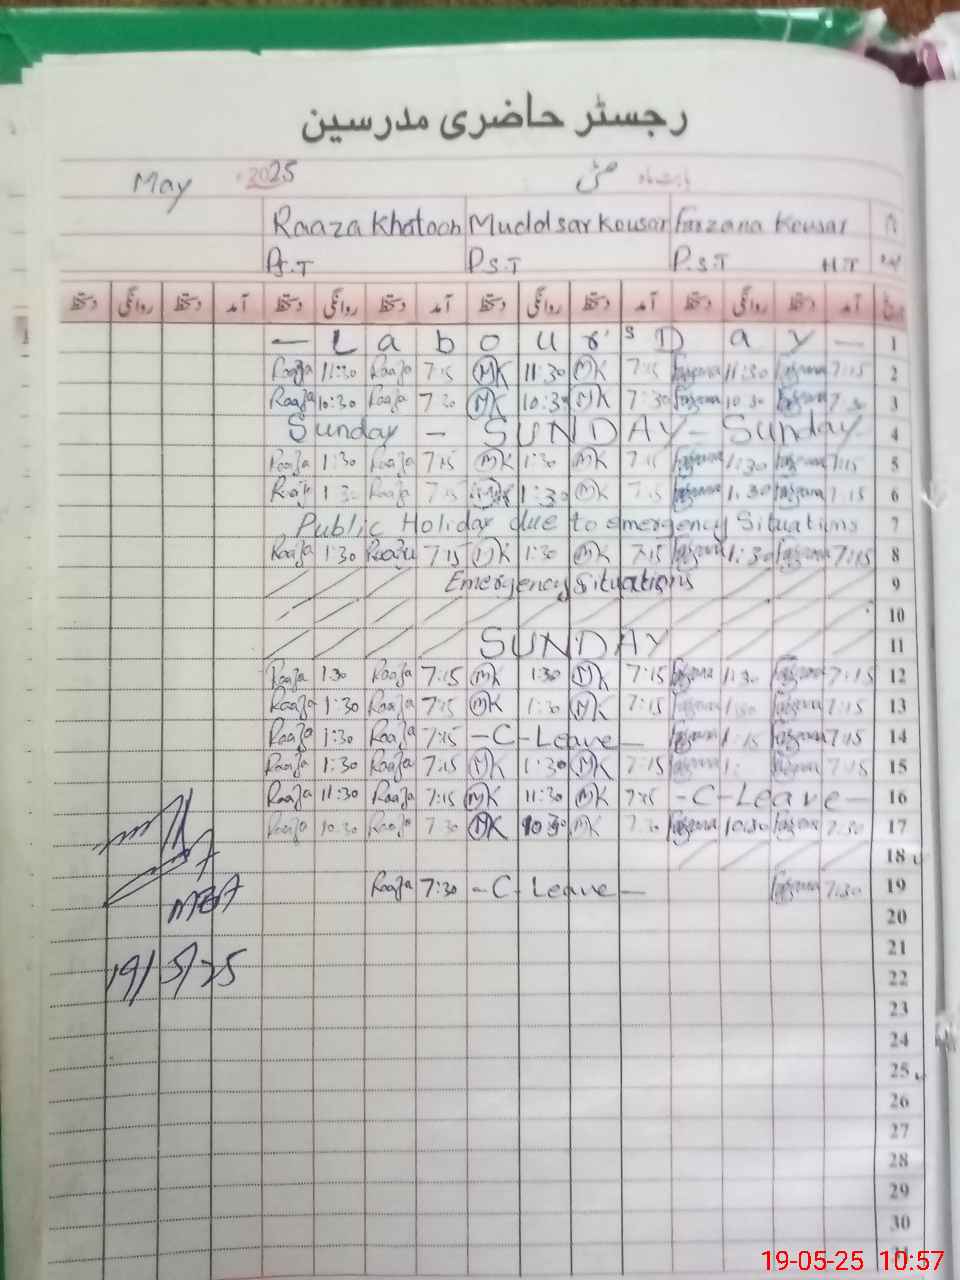 رجسٹر حاضری مدرسین
May 2025 بابت ماہ مئی
Raaza Khatoon Muddsar Kousar Farzana Kousar
P.S.T P.S.T P.S.T H.T
دستخط روانگی دستخط آمد دستخط روانگی دستخط آمد دستخط روانگی دستخط آمد دستخط روانگی دستخط آمد تاریخ
— Labour's Day — 1
Raaza 11:30 Raaza 7:15 MK 11:30 MK 7:15 Farzana 11:30 Farzana 7:15 2
Raaza 10:30 Raaza 7:30 MK 10:30 MK 7:30 Farzana 10:30 Farzana 7:30 3
Sunday — SUNDAY — Sunday 4
Raaza 1:30 Raaza 7:15 MK 1:30 MK 7:15 Farzana 1:30 Farzana 7:15 5
Raaza 1:30 Raaza 7:15 1:30 MK 7:15 Farzana 1:30 Farzana 7:15 6
Public Holiday due to emergency Situations 7
Raaza 1:30 Raaza 7:15 MK 1:30 MK 7:15 Farzana 1:30 Farzana 7:15 8
Emergency Situations 9
10
SUNDAY 11
Raaza 1:30 Raaza 7:15 MK 1:30 MK 7:15 Farzana 1:30 Farzana 7:15 12
Raaza 1:30 Raaza 7:15 MK 1:30 MK 7:15 Farzana 1:30 Farzana 7:15 13
Raaza 1:30 Raaza 7:15 -C-Leave- Farzana 1:15 Farzana 7:15 14
Raaza 1:30 Raaza 7:15 MK 1:30 MK 7:15 Farzana Farzana 7:15 15
Raaza 11:30 Raaza 7:15 MK 11:30 MK 7:15 -C-Leave- 16
Raaza 10:30 Raaza 7:30 MK 10:30 MK 7:30 Farzana 10:30 Farzana 7:30 17
18
Raaza 7:30 -C-Leave- Farzana 7:30 19
20
21
22
23
24
25
26
27
28
29
30
31
19/5/25
19-05-25 10:57